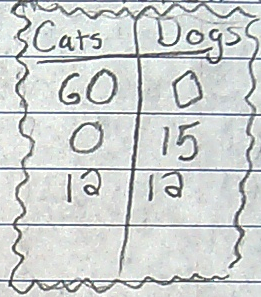 Cats Dogs
60 0
0 15
12 12